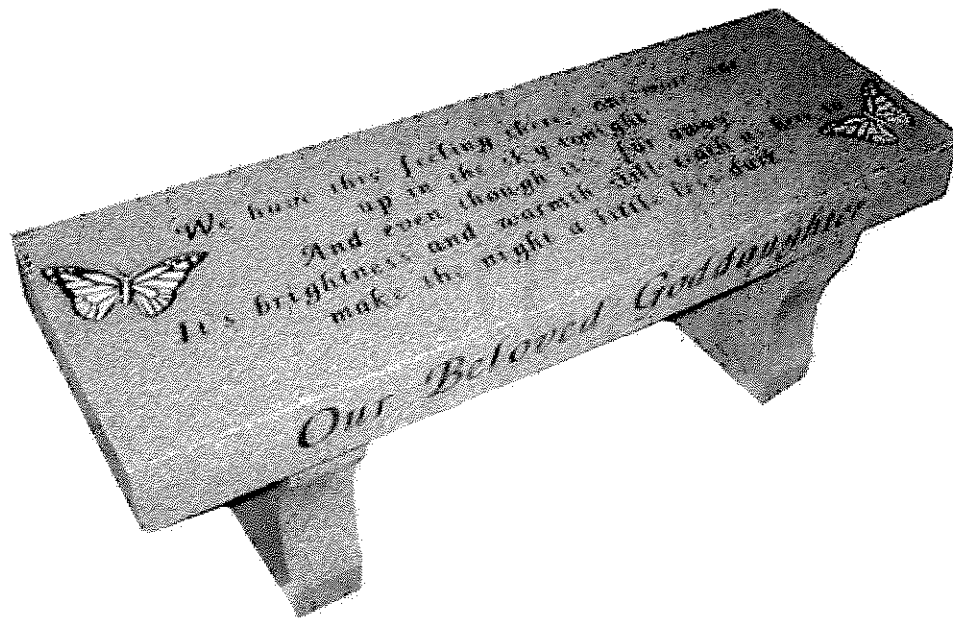 We have this feeling there's one more star
up in the sky tonight
And even though it's far away
It's brightness and warmth still reach us here to
make the night a little less dark
Our Beloved Goddaughter